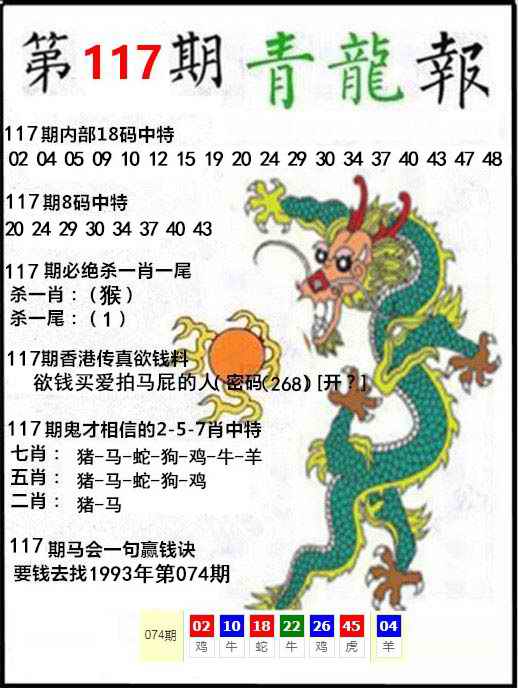 第117期青龍報
117期内部18码中特
02 04 05 09 10 12 15 19 20 24 29 30 34 37 40 43 47 48
117期8码中特
20 24 29 30 34 37 40 43
117 期必绝杀一肖一尾
杀一肖：（猴）
杀一尾：（1）
117期香港传真欲钱料
欲钱买爱拍马屁的人（密码(268）[开？]
117期鬼才相信的2-5-7肖中特
七肖： 猪-马-蛇-狗-鸡-牛-羊
五肖： 猪-马-蛇-狗-鸡
二肖： 猪-马
117期马会一句赢钱诀
要钱去找1993年第074期
074期 02 10 18 22 26 45 04
鸡 牛 蛇 牛 鸡 虎 羊